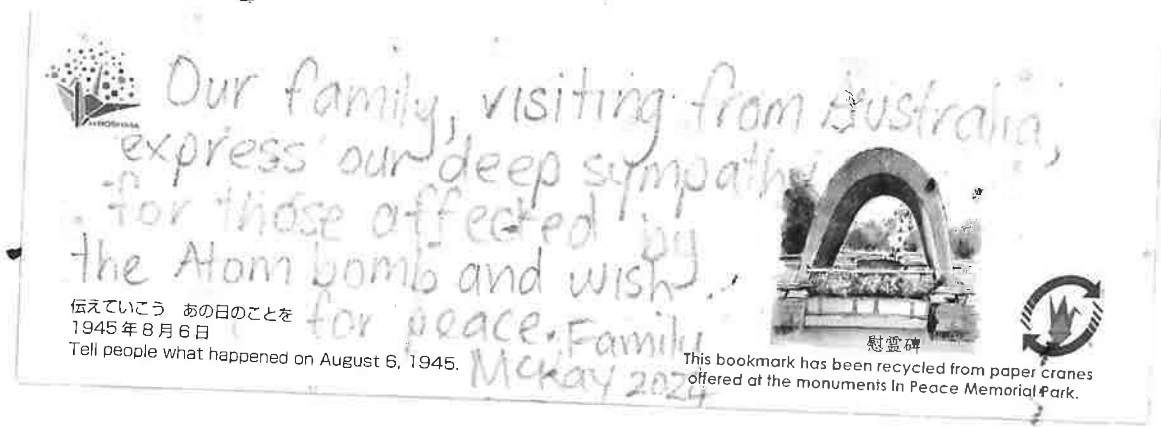 HIROSHIMA
Our family, visiting from Australia,
express our deep sympathy
for those affected by
the Atom bomb and wish
for peace. Family
McKay 2024
伝えていこう あの日のことを
1945年8月6日
Tell people what happened on August 6, 1945.
慰霊碑
This bookmark has been recycled from paper cranes
offered at the monuments In Peace Memorial Park.